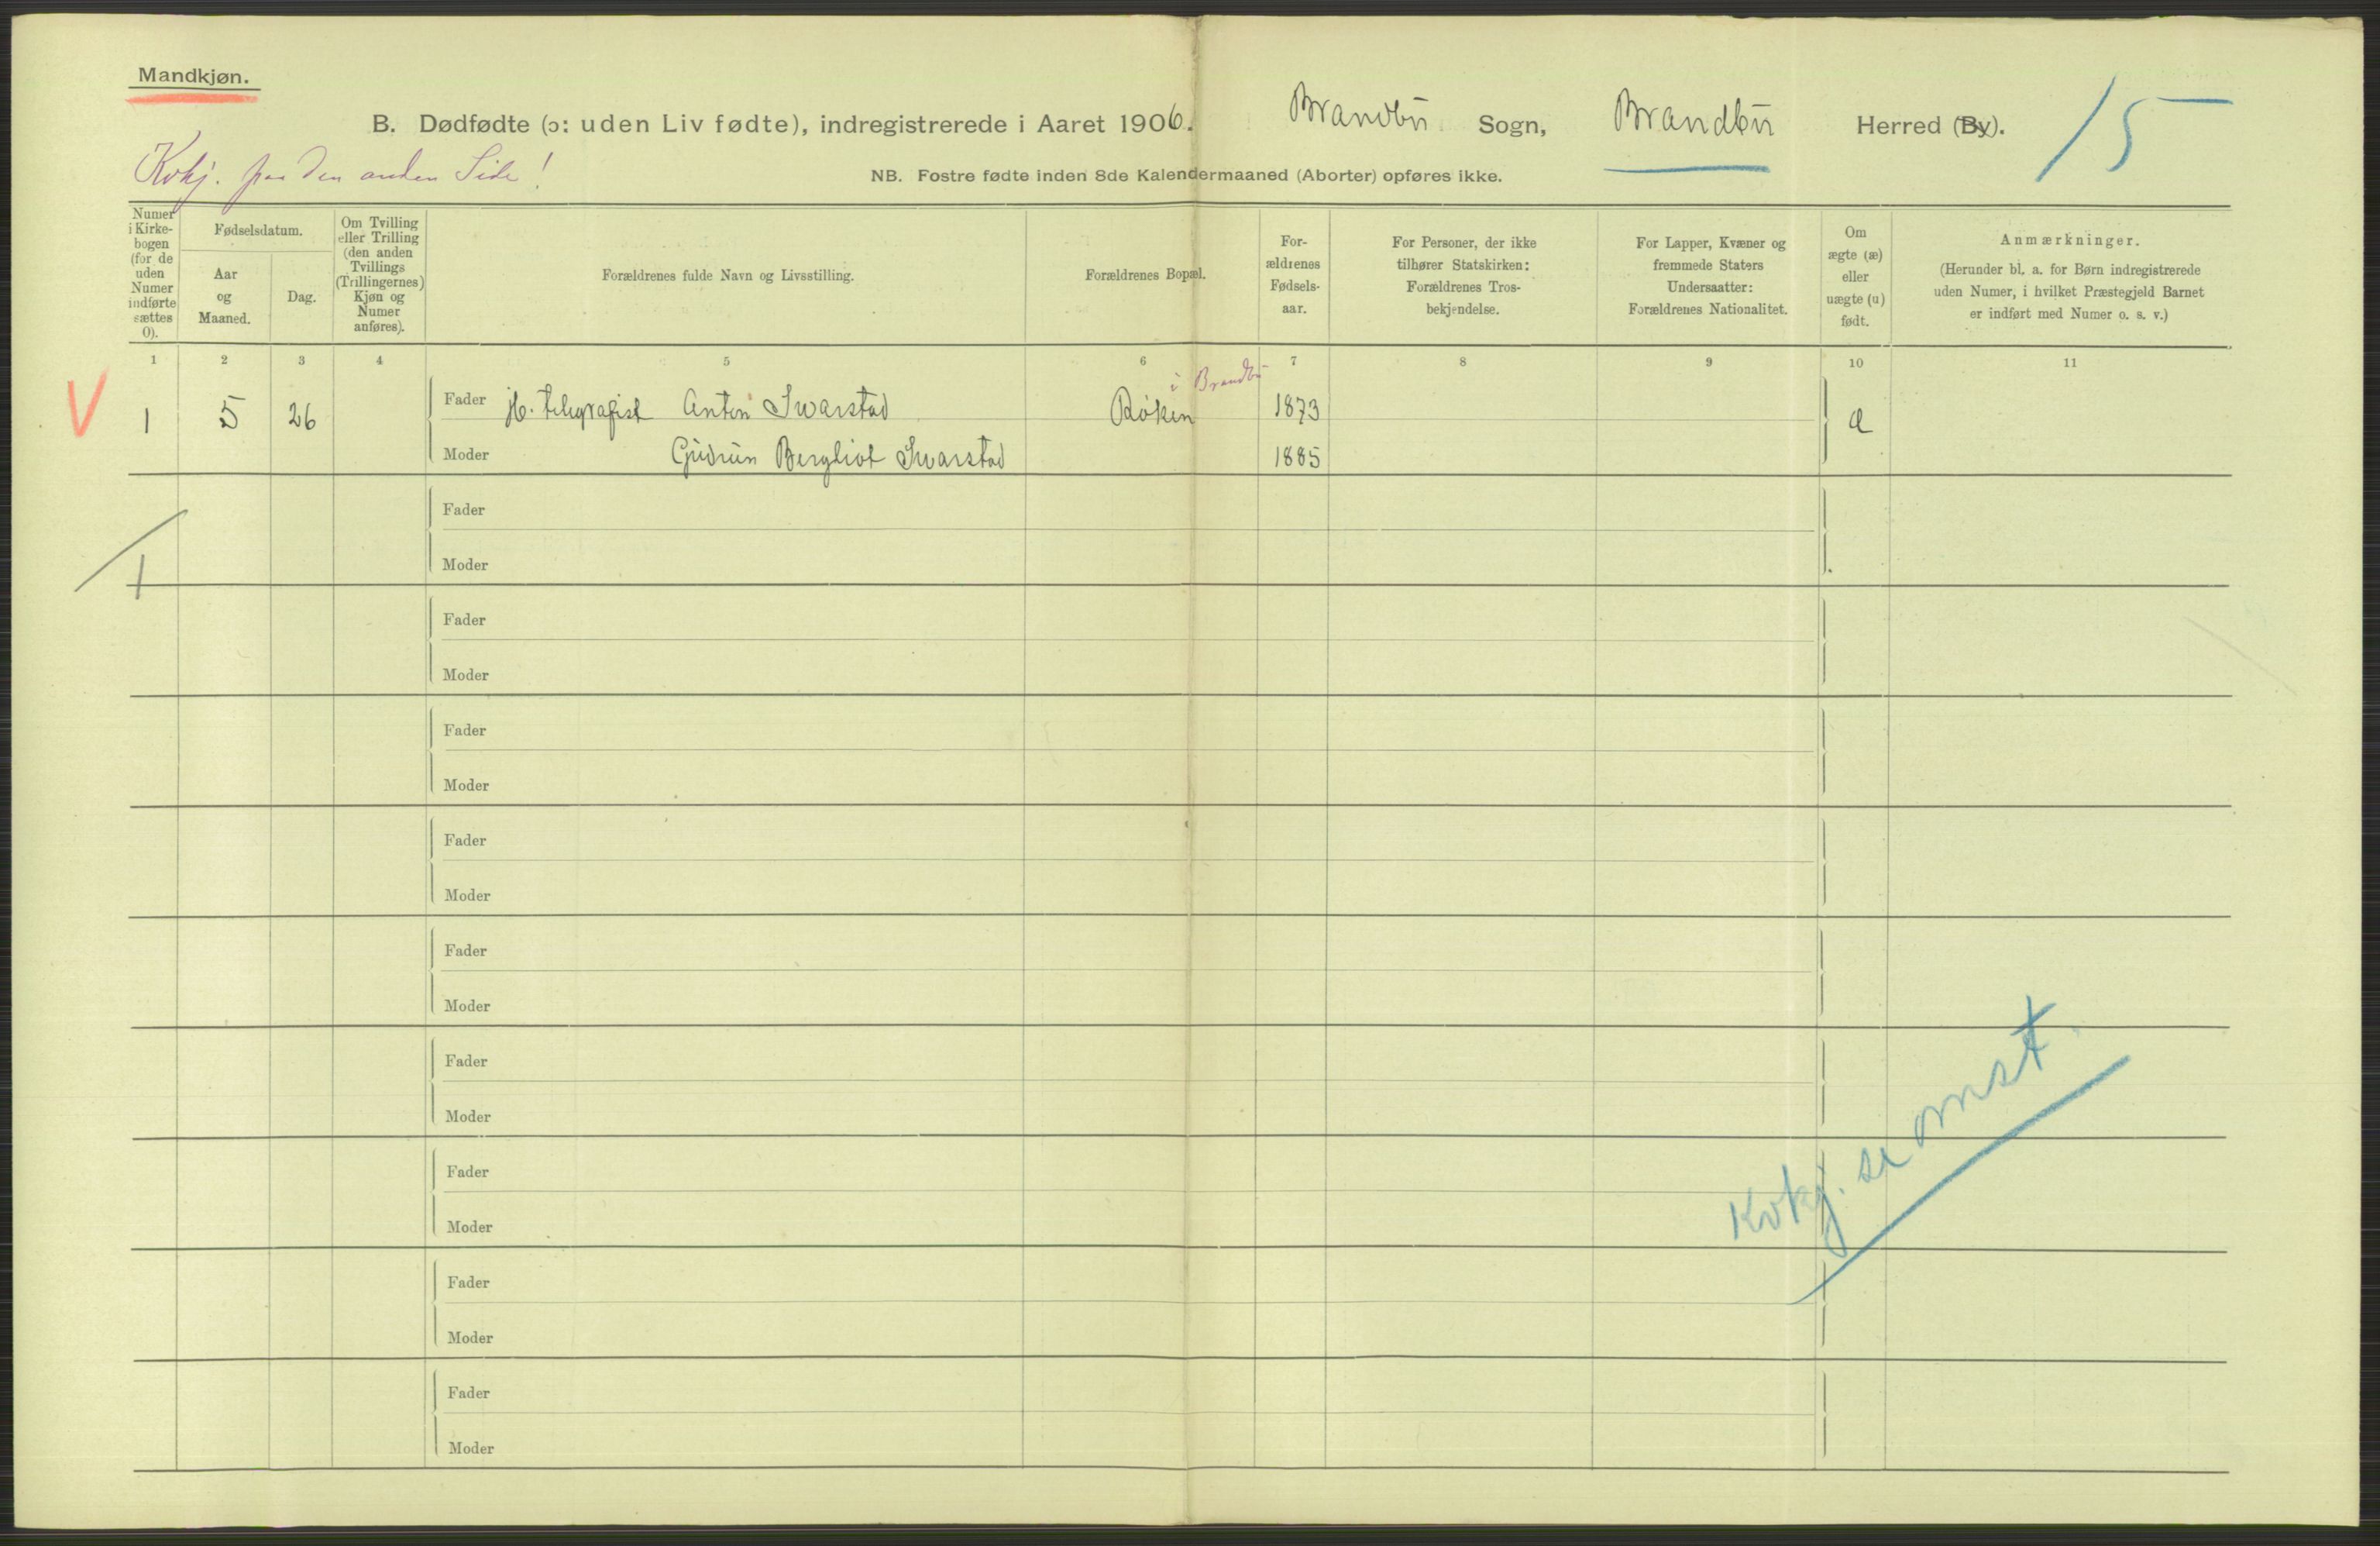 Mandkjøn.
B. Dødfødte (ɔ: uden Liv fødte), indregistrerede i Aaret 1906. Brandbu Sogn, Brandbu Herred (By). 15
Kvkj. paa den anden Side!
NB. Fostre fødte inden 8de Kalendermaaned (Aborter) opføres ikke.
Numer i Kirke-bogen (for de uden Numer indførte sættes 0).
Fødselsdatum.
Aar og Maaned.
Dag.
Om Tvilling eller Trilling (den anden Tvillings (Trillingernes) Kjøn og Numer anføres).
Forældrenes fulde Navn og Livsstilling.
Forældrenes Bopæl.
For-ældrenes Fødsels-aar.
For Personer, der ikke tilhører Statskirken: Forældrenes Tros-bekjendelse.
For Lapper, Kvæner og fremmede Staters Undersaatter: Forældrenes Nationalitet.
Om ægte (æ) eller uægte (u) født.
Anmærkninger.
(Herunder bl. a. for Børn indregistrerede uden Numer, i hvilket Præstegjeld Barnet er indført med Numer o. s. v.)
1 2 3 4 5 6 7 8 9 10 11
i Brandbu
V 1 5 26 Fader telegrafist Anton Svarstad Røken 1873 æ
Moder Gudrun Bergliot Svarstad 1885
Fader
1 Moder
Fader
Moder
Fader
Moder
Fader
Moder
Fader
Moder
Fader
Moder
Fader
Moder
Fader
Moder
Fader
Moder
Kvkj. se omst.